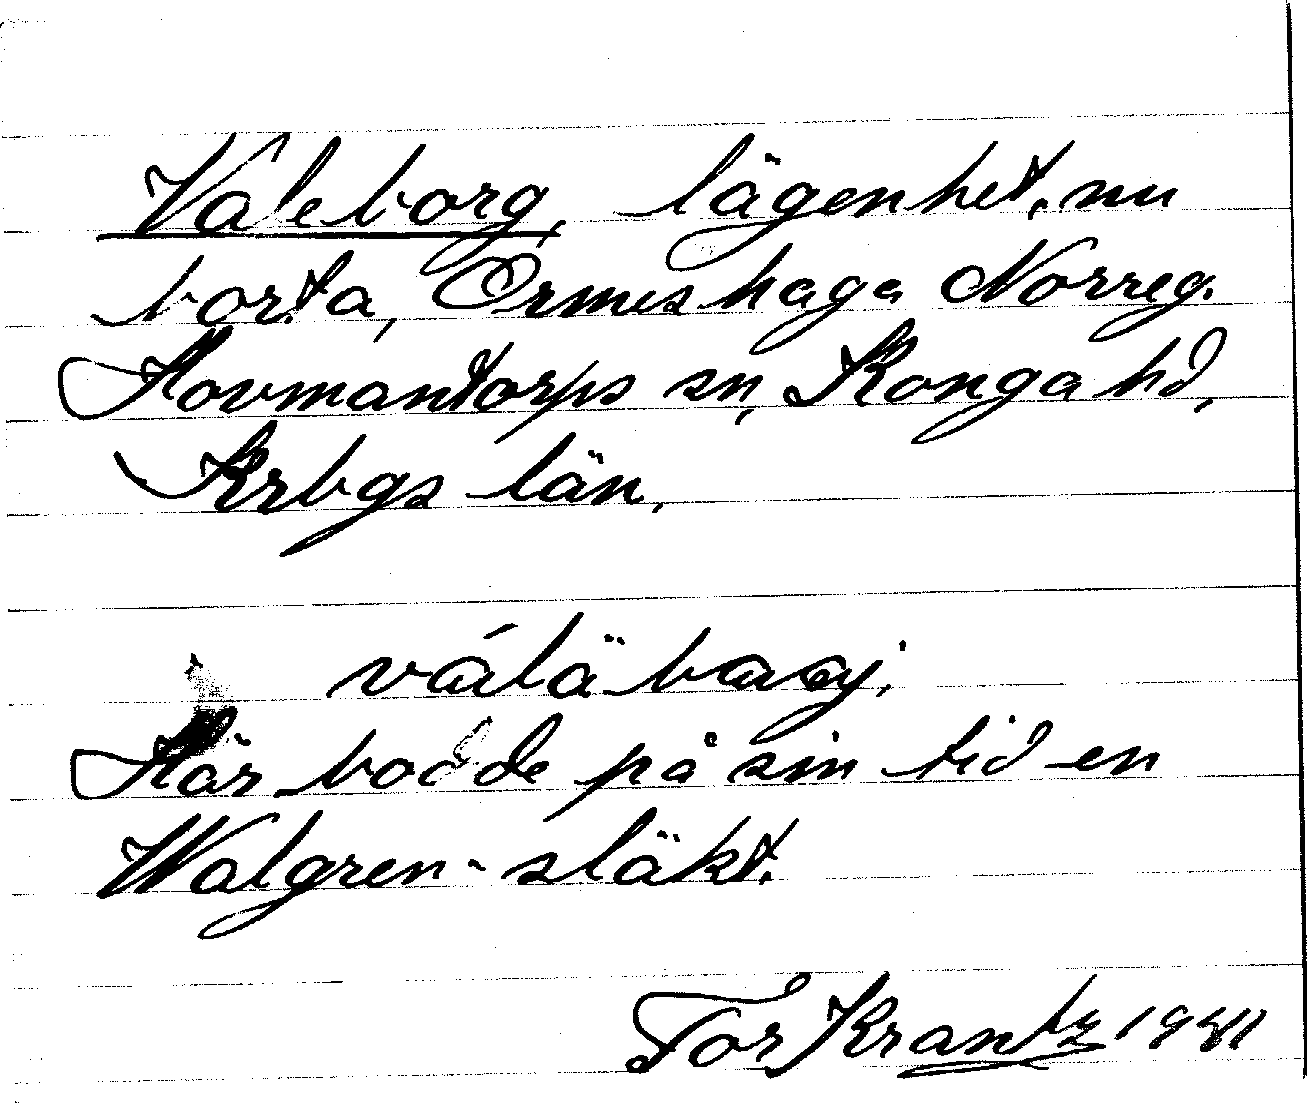 Valeborg, lägenhet, nu
borta, Ormeshaga Norreg.
Hovmantorps sn, Konga hd,
Krbgs län,
Här bodde på sin tid en
Walgren-släkt.
Tor Krantz 1981